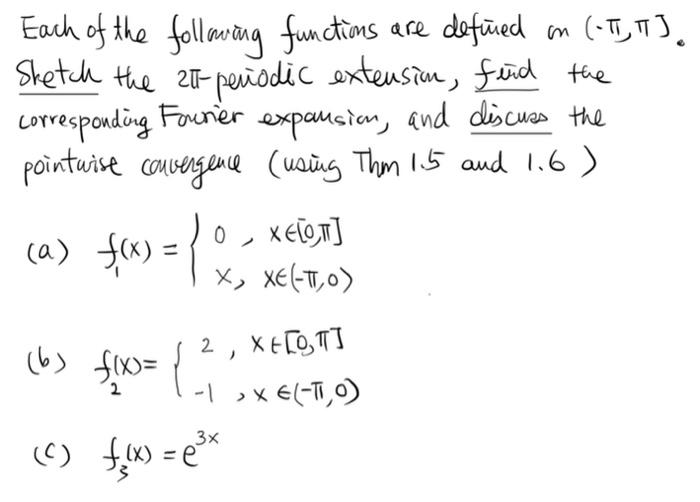 Each of the following functions are defined on (-π,π].
Sketch the 2π-periodic extension, find the
corresponding Fourier expansion, and discuss the
pointwise convergence (using Thm 1.5 and 1.6)
(a) f₁(x) = { 0, x∈[0,π]
x, x∈(-π,0)
(b) f₂(x)= { 2, x∈[0,π]
-1, x∈(-π,0)
(c) f₃(x) = e³ˣ